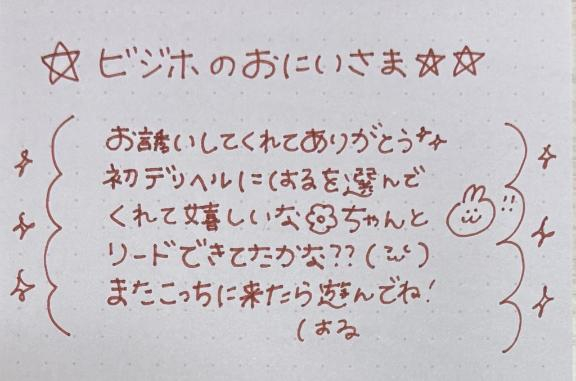 ☆ビジホのおにいさま☆☆
お誘いしてくれてありがとう
初デリヘルにはるを選んで
くれて嬉しいな ちゃんと
リードできてたかな??(˘ω˘)
またこっちに来たら遊んでね!
はる
!!